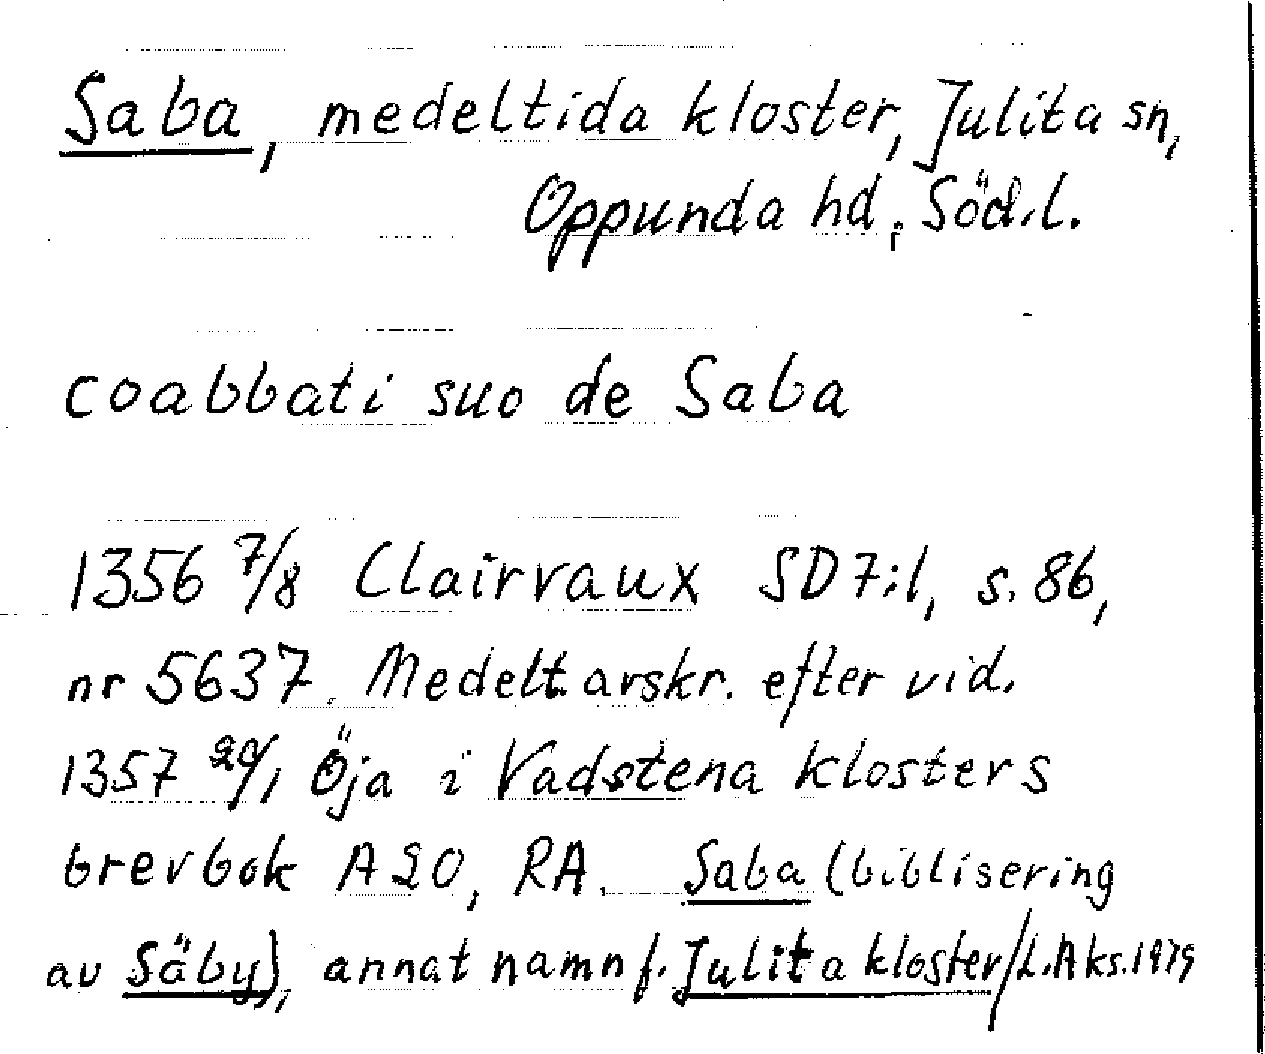 Saba, medeltida kloster, Julita sn,
Oppunda hd, Söd.l.
coabbati suo de Saba
1356 7/8 Clairvaux SD 7:1, s. 86,
nr 5637. Medelt. avskr. efter vid.
1357 20/1 Öja i Vadstena klosters
brevbok A20, RA. Saba (biblisering
av Säby), annat namn f. Julita kloster/L.Aks.1979